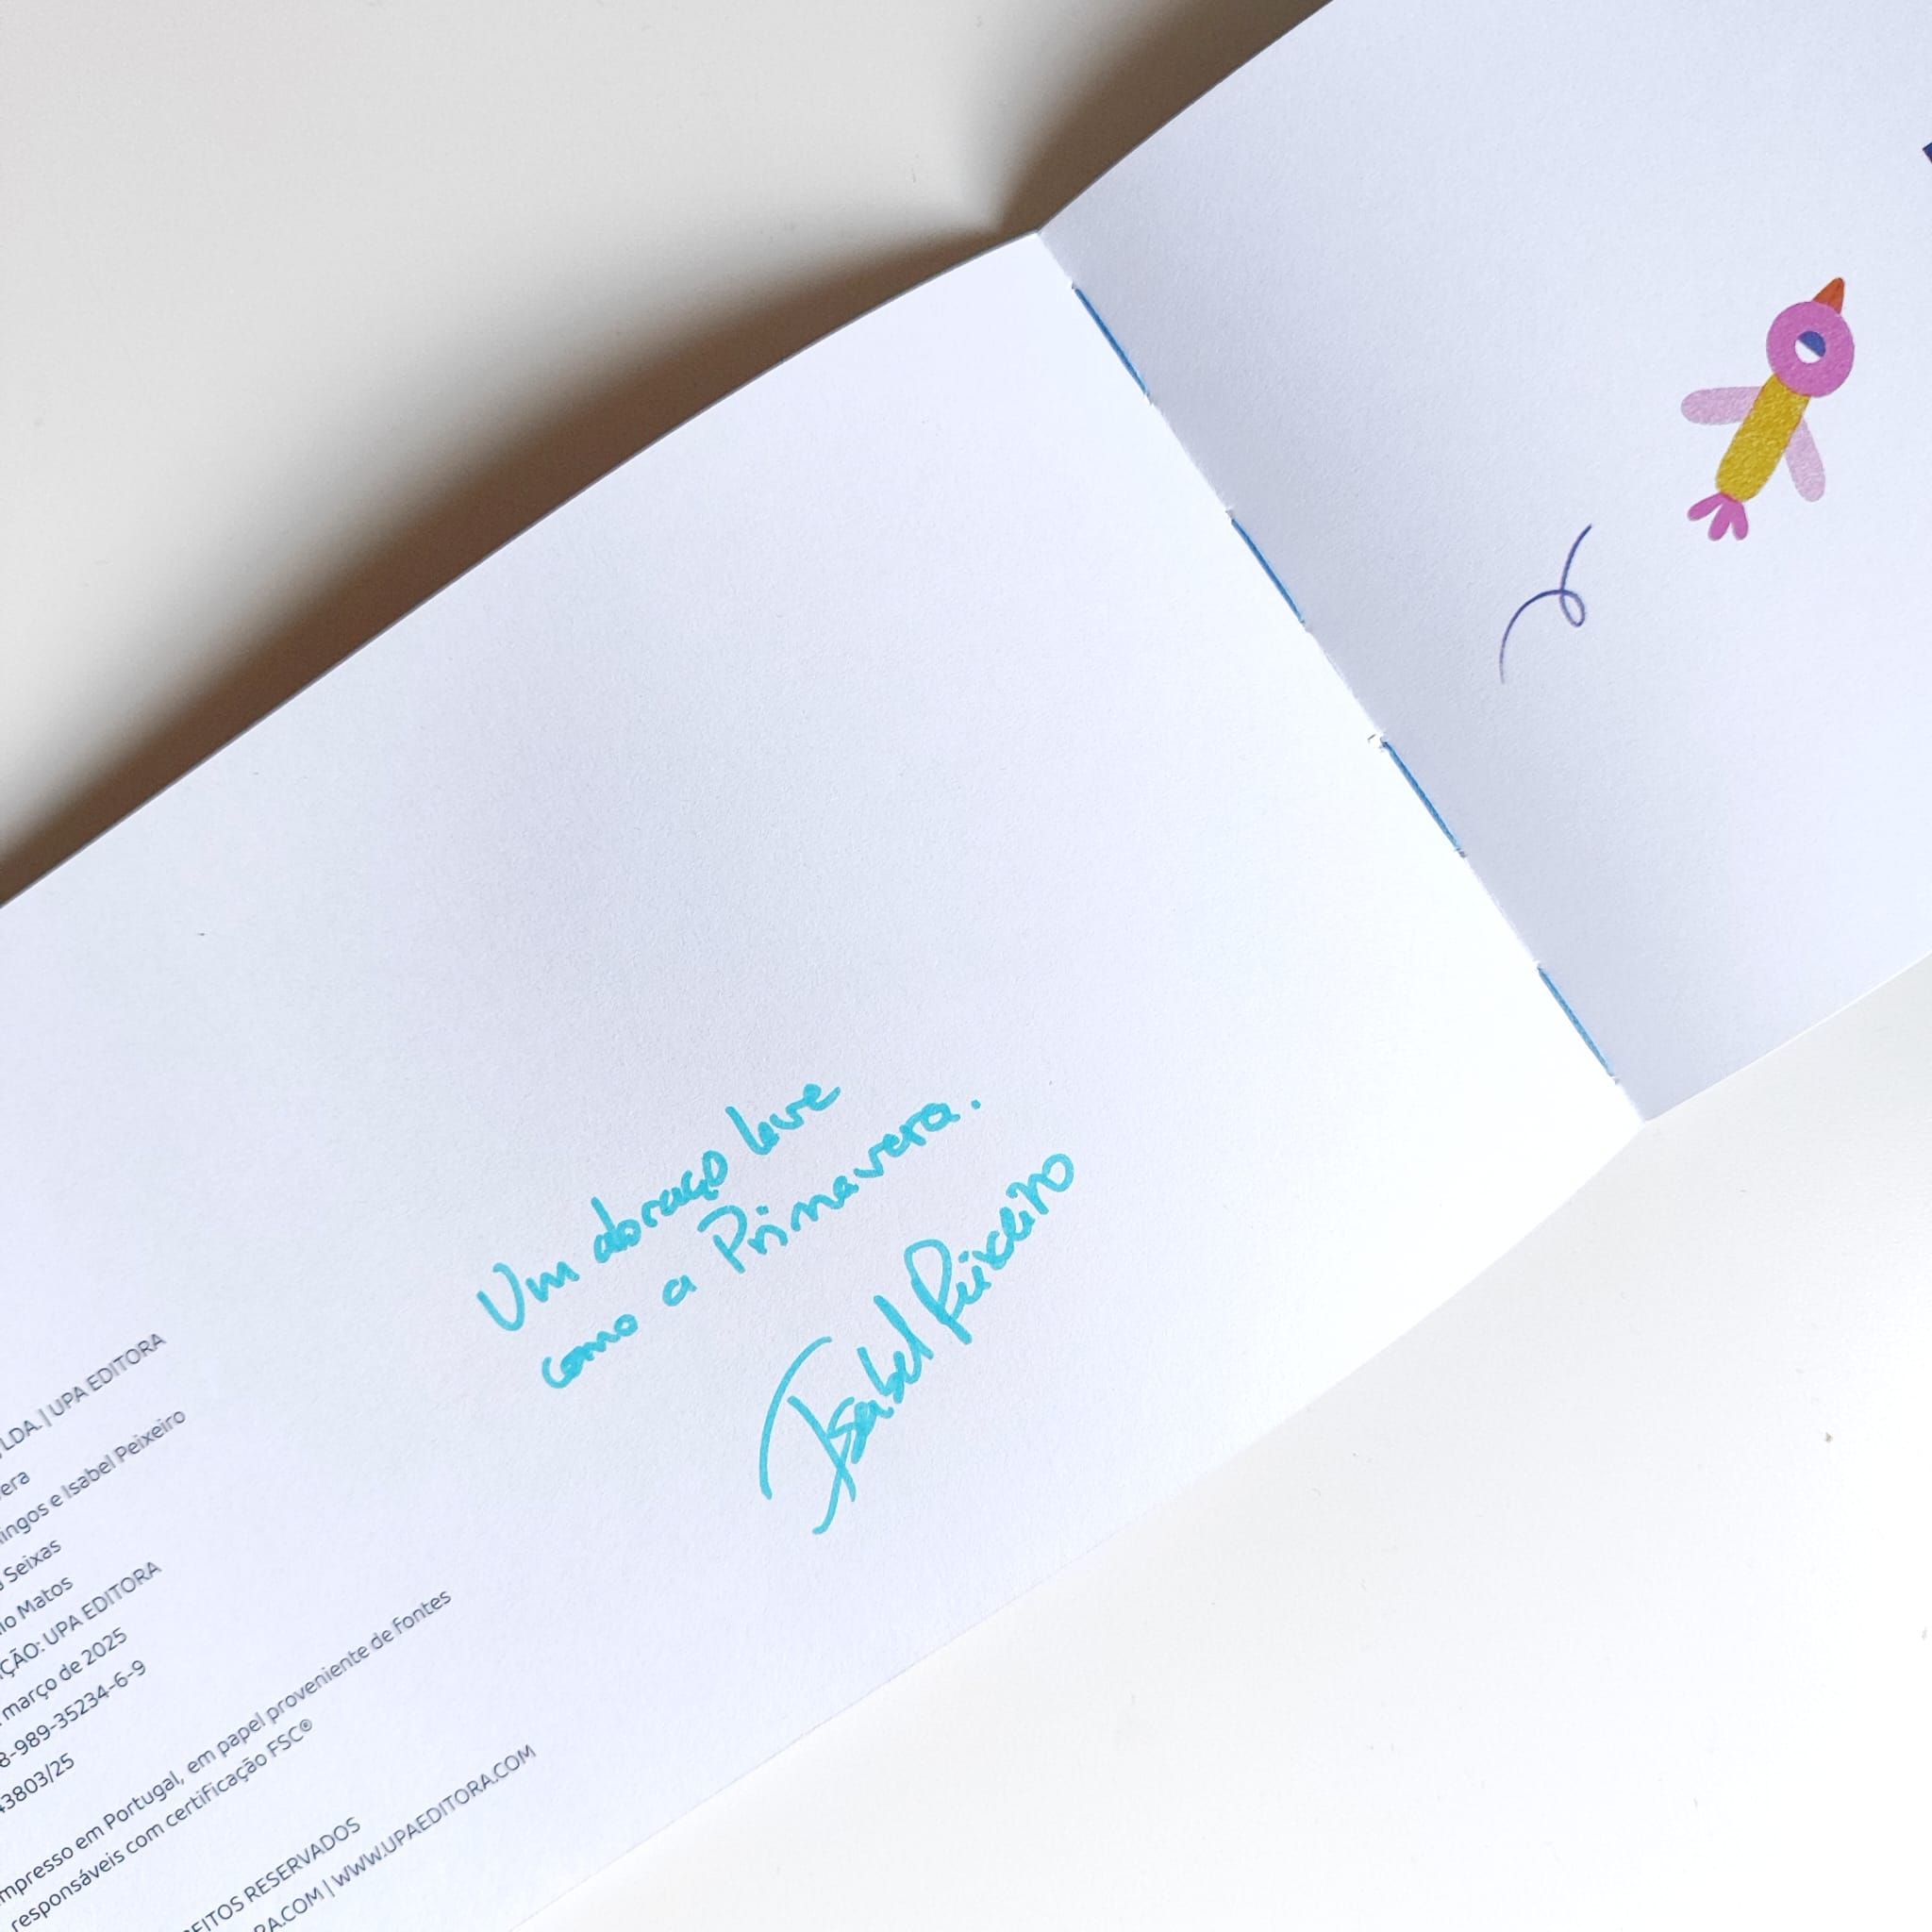 Um abraço leve
como a Primavera.
Isabel Peixeiro
LDA. | UPA EDITORA
e Isabel Peixeiro
Seixas
Matos
UPA EDITORA
março de 2025
8-989-35234-6-9
43803/25
mpresso em Portugal, em papel proveniente de fontes
responsáveis com certificação FSC®
RESERVADOS
.COM | WWW.UPAEDITORA.COM